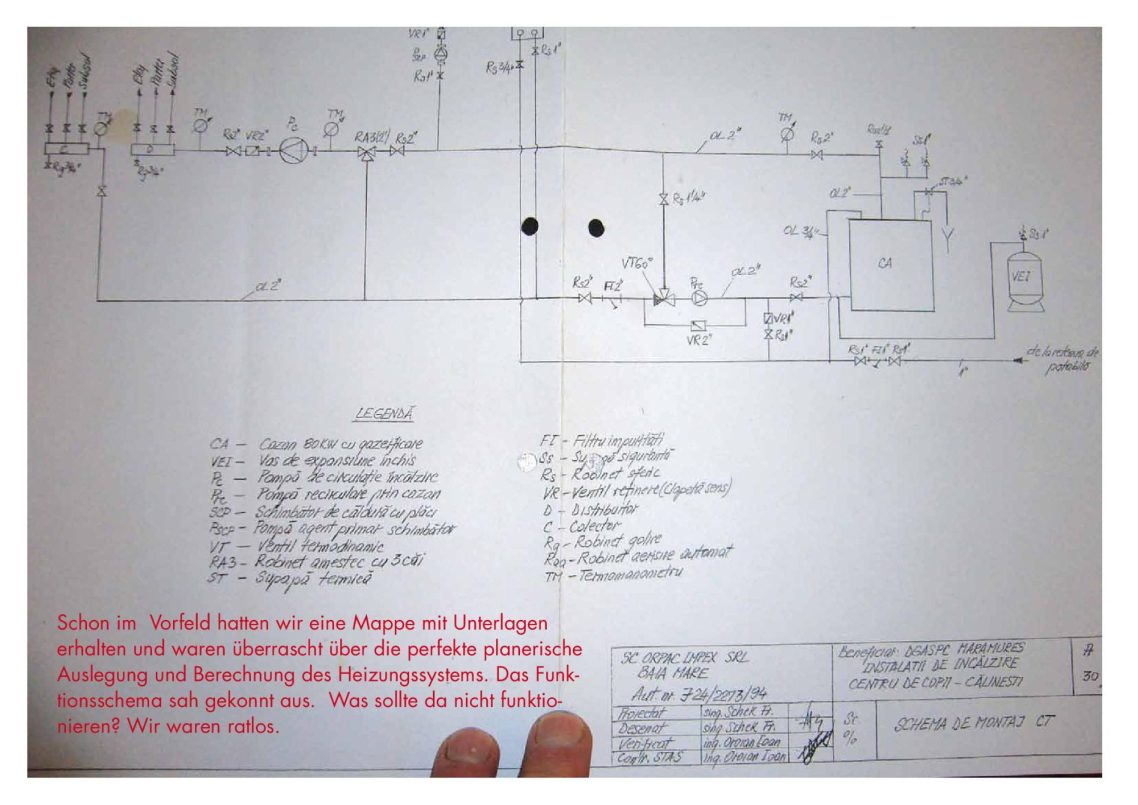 VR1"
PSCP
Rs1"
Rs3/4"
Rs1"
Etaj
Parter
Subsol
Etaj
Parter
Subsol
TM
TM
Rs2"
VR2"
Pc
TM
RA3(2")
Rs2"
OL2"
TM
Rs2"
Ss1"
C
D
Rg3/4"
Rg3/4"
Rs1"1/4"
OL2"
ST3/4"
OL 3/4"
CA
Ss1"
VEI
VT60°
Rs2"
FI2"
OL2"
Rs2"
OL2"
VR2"
VR1"
Rs1"
Rs1"
FI1"
Rs1"
1"
de la reteaua de
potabila
LEGENDĂ
CA – Cazan 80KW cu gazeificare
VEI – Vas de expansiune închis
Pc – Pompă de circulație încălzire
Prc – Pompă recirculare prin cazan
SCP – Schimbător de căldură cu plăci
PSCP – Pompă agent primar schimbător
VT – Ventil termodinamic
RA3 – Robinet amestec cu 3 căi
ST – Supapă termică
FI – Filtru impurități
Ss – siguranță
Rs – Robinet sferic
VR – Ventil reținere (Clapetă sens)
D – Distribuitor
C – Colector
Rg – Robinet golire
Raa – Robinet aerisire automat
TM – Termomanometru
Schon im Vorfeld hatten wir eine Mappe mit Unterlagen
erhalten und waren überrascht über die perfekte planerische
Auslegung und Berechnung des Heizungssystems. Das Funk-
tionsschema sah gekonnt aus. Was sollte da nicht funktio-
nieren? Wir waren ratlos.
SC ORPAC IMPEX SRL
BAIA MARE
Aut nr. J24/2073/94
Beneficiar: DGASPC MARAMURES
INSTALATII DE INCĂLZIRE
CENTRU DE COPII – CĂLINESTI
30
Proiectat sing. Schek Fr.
Desenat sing Schek Fr.
Verificat ing. Oroian Ioan
Contr. STAS ing. Oroian Ioan
Sc
%
SCHEMA DE MONTAJ CT